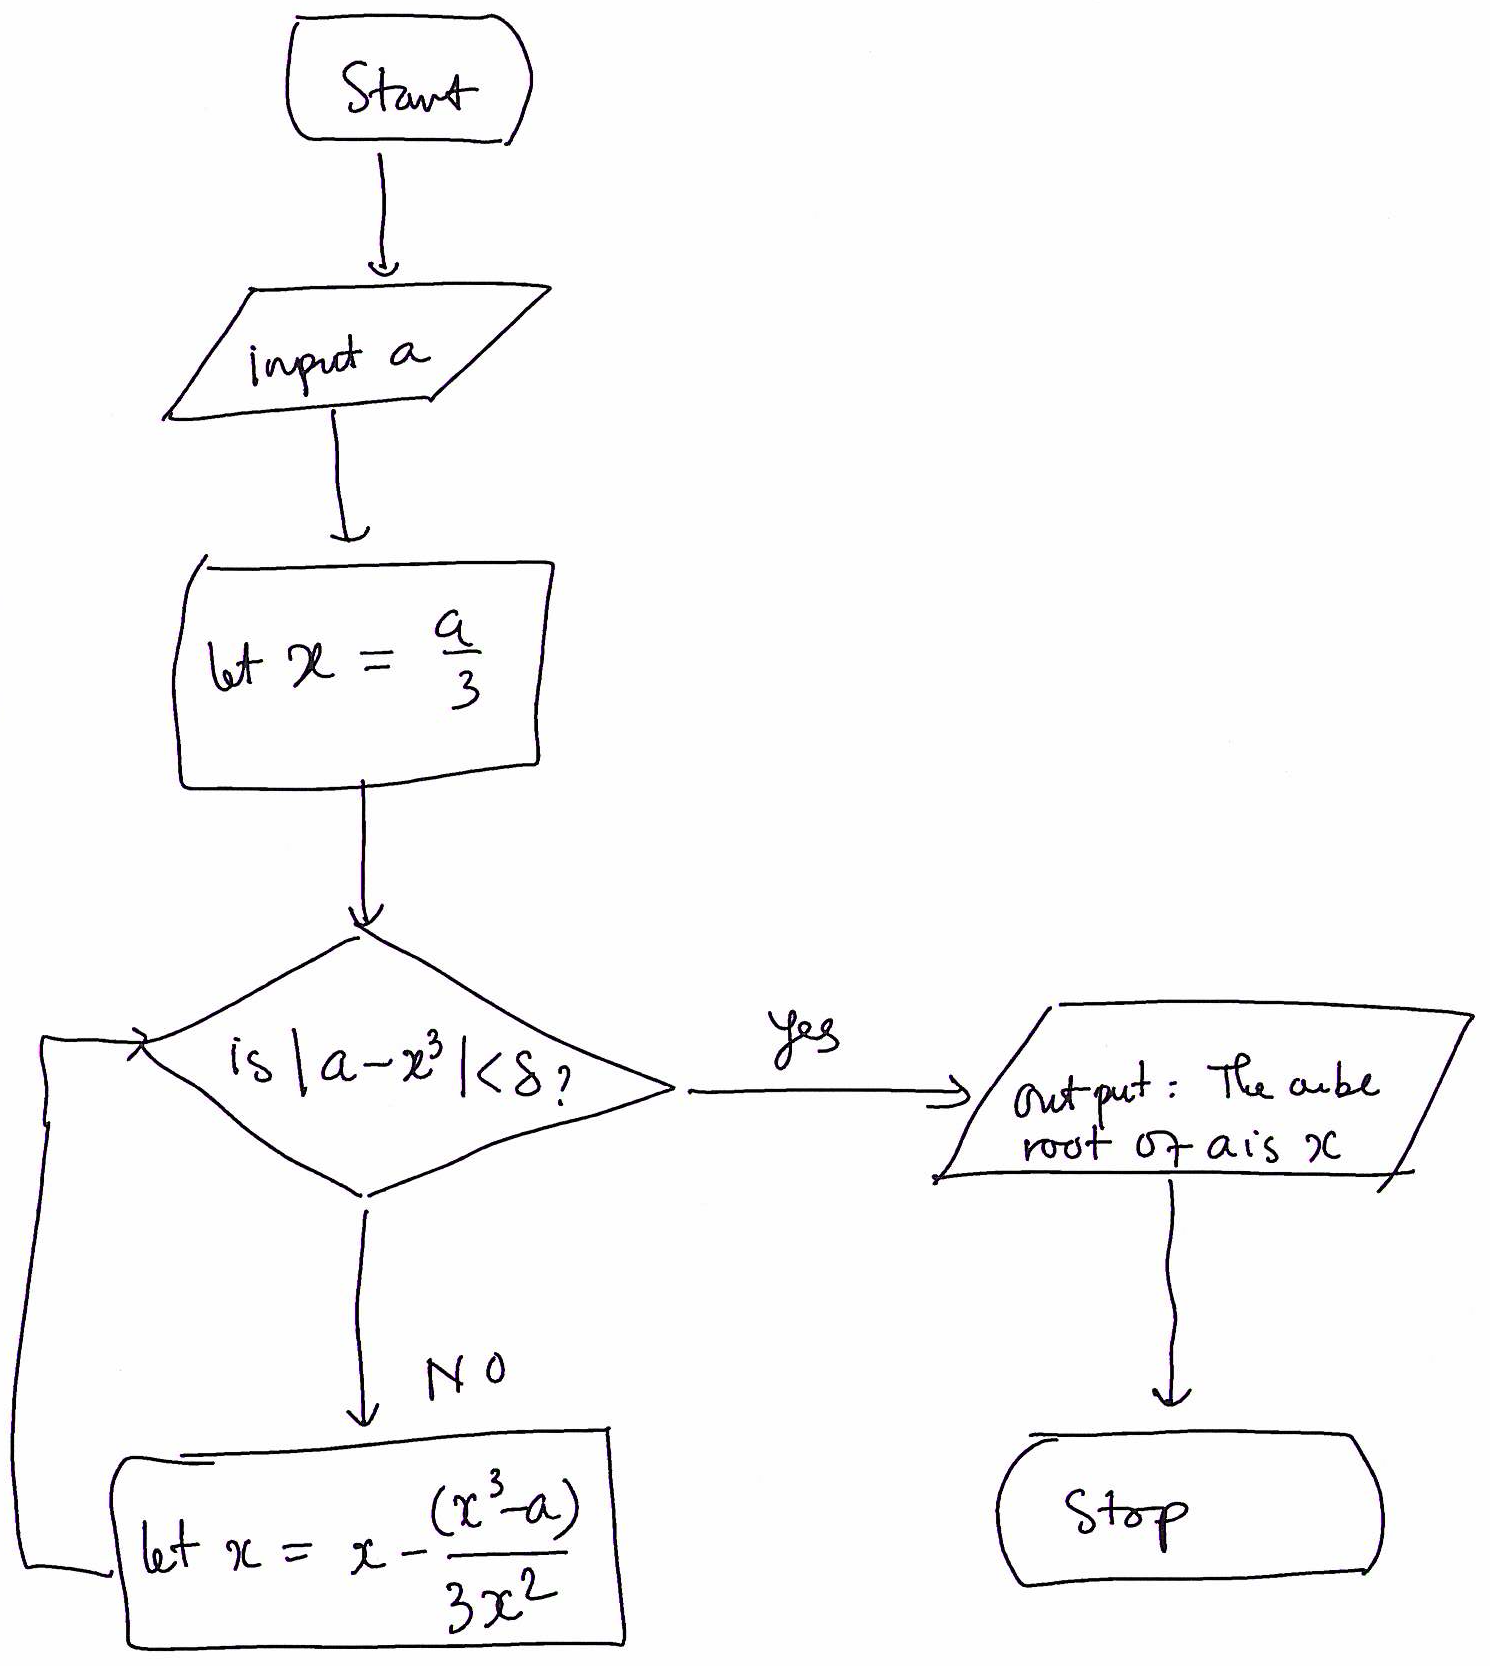 Start
input a
let x = a/3
is |a-x³|<δ?
Yes
output: The cube
root of a is x
NO
let x = x - (x³-a)/3x²
Stop